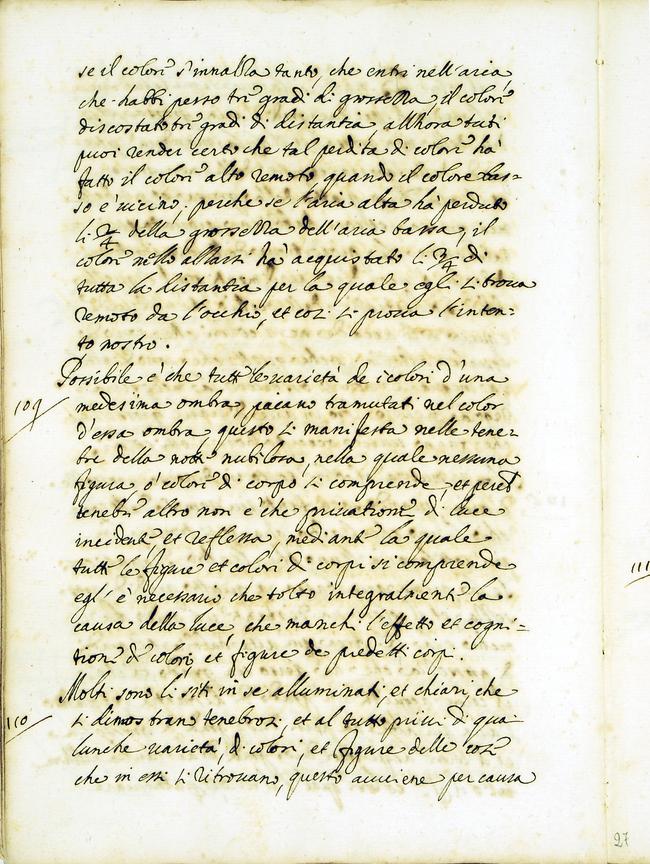 se il colore s'innalza tanto, che entri nell'aria,
che habbi perso tre gradi di grossezza, il colore
discostato tre gradi di distantia, allhora tu ti
puoi render certo che tal perdita di colore ha
fatto il colore alto remoto quando il colore bas-
so è vicino; perche se l'aria alta ha perduto
li 3/4 della grossezza dell'aria bassa, il
colore nello alzarsi ha acquistato li 3/4 di
tutta la distantia per la quale egli si trova
remoto da l'occhio, et così si prova l'inten-
to nostro.
Possibile è che tutte le varietà de i colori d'una
109 medesima ombra paiano tramutati nel color
d'essa ombra, questo si manifesta nelle tene-
bre della notte nubilosa, nella quale nessuna
figura, ò colore di corpo si comprende, et perche
tenebre altro non è che privatione di luce
incidente, et reflessa, mediante la quale
tutte le figure et colori di corpi si comprende
egl' è necessario che tolto integralmente la
causa della luce, che manchi l'effetto et cogni-
tione di colori, et figure de predetti corpi.
Molti sono li siti in se alluminati, et chiari, che
110 si dimostran tenebrosi, et al tutto privi di qua-
lunche varietà, di colori, et figure delle cose
che in essi si ritrovano, questo avviene per causa
111
27